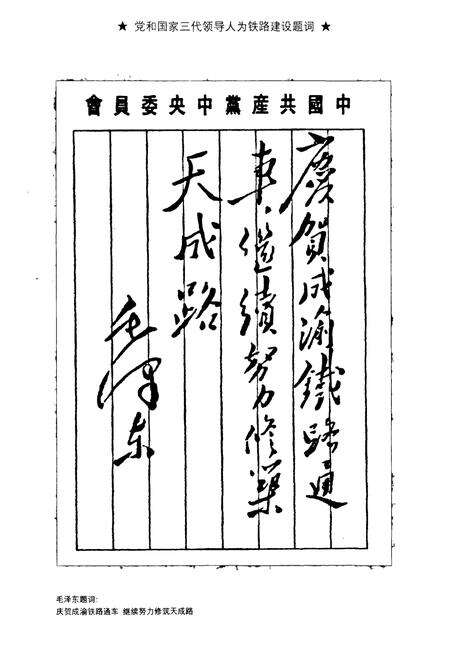 ★ 党和国家三代领导人为铁路建设题词 ★
中國共産黨中央委員會
慶賀成渝鐵路通
車，繼續努力修築
天成路
毛澤东
毛泽东题词:
庆贺成渝铁路通车 继续努力修筑天成路